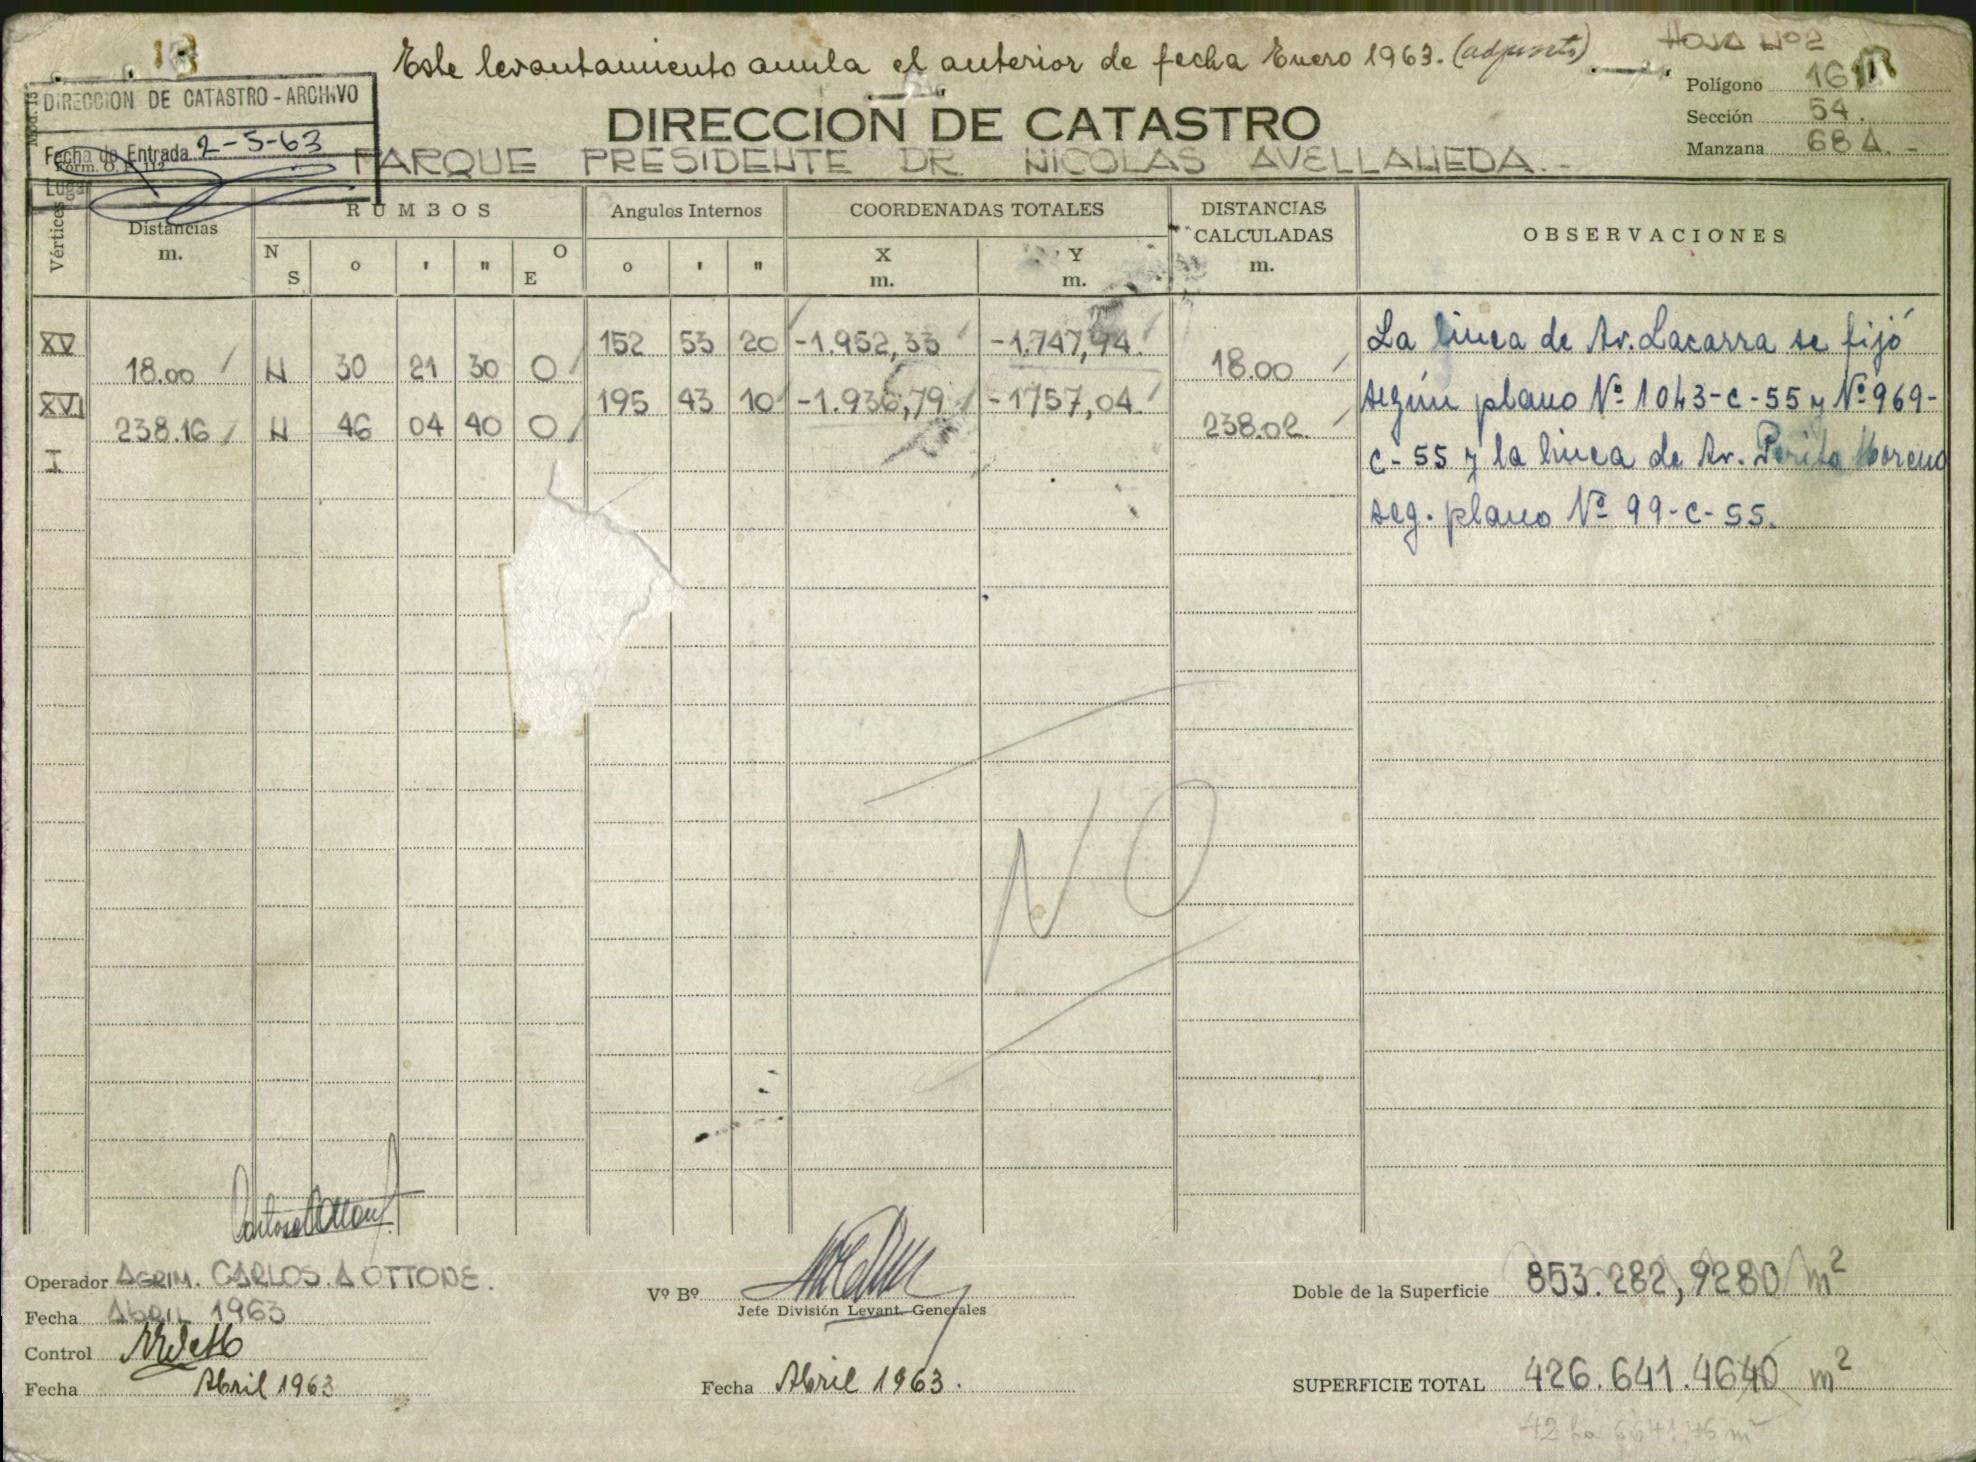 Este levantamiento anula el anterior de fecha Enero 1963. (adjunto)
HOJA Nº 2
DIRECCION DE CATASTRO - ARCHIVO
Fecha de Entrada 2-5-63
Polígono 16
Sección 54.
Manzana 68 A. -
DIRECCION DE CATASTRO
PARQUE PRESIDENTE DR. NICOLAS AVELLANEDA. -
Vértices
Distancias m.
RUMBOS
N S ° ' " O E
Angulos Internos
° ' "
COORDENADAS TOTALES
X m.
Y m.
DISTANCIAS CALCULADAS m.
OBSERVACIONES
XV 152 53 20 -1.952,33 -1.747,94.
18.00 N 30 21 30 O 18.00
XVI 195 43 10 -1.936,79 -1757,04.
238.16 N 46 04 40 O 238.02.
I
La linea de Av. Lacarra se fijó
según plano Nº 1043-C-55 y Nº 969-
C-55 y la linea de Av. Perito Moreno
seg. plano Nº 99-C-55.
NO
Operador AGRIM. CARLOS A OTTONE.
Fecha Abril 1963
Control
Fecha Abril 1963
Vº Bº
Jefe División Levant. Generales
Fecha Abril 1963.
Doble de la Superficie 853.282,9280 m²
SUPERFICIE TOTAL 426.641.4640 m²